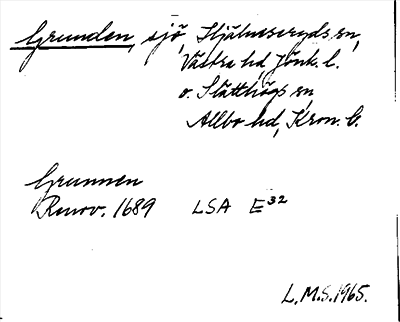 Grunden, sjö, Stjälmseryds sn,
Västra hd Jönk. l.
o. Slätthögs sn,
Allbo hd, Kron. l.
Grunnen
Renov. 1689 LSA E³²
L.M.S. 1965.